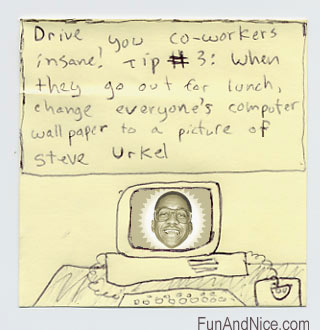 Drive you co-workers
insane! Tip #3: When
they go out for lunch,
change everyone's computer
wallpaper to a picture of
Steve Urkel
FunAndNice.com